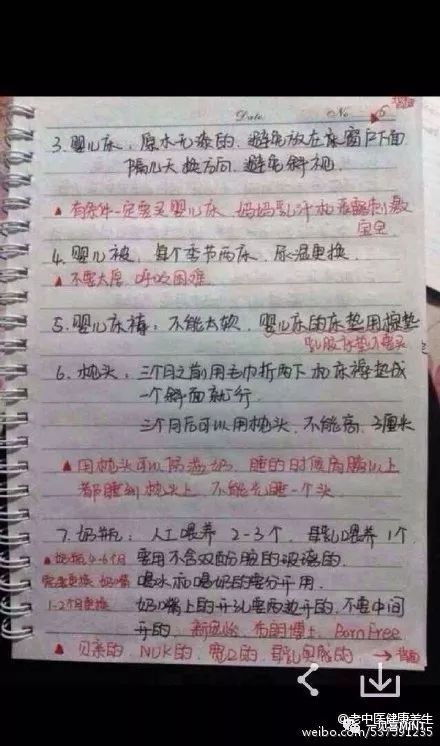 背面
Date No. 5
3. 婴儿床：原木无漆的，避免放在床窗户下面
隔几天换方向，避免斜视
▲ 有条件一定要买婴儿床，妈妈乳汁和 刺激
宝宝
4. 婴儿被，每个季节两床，尿湿更换
▲ 不要太厚，呼吸困难
5. 婴儿床褥：不能太软，婴儿床的床垫用棕垫
乳胶床垫不要买
6. 枕头：三个月之前用毛巾折两下和床褥垫成
一个斜面就行
三个月后可以用枕头，不能高，3厘米
▲ 用枕头可以防 奶，睡的时候肩膀以上
都睡到枕头上，不能光睡一个头
7. 奶瓶：人工喂养 2-3个，母乳喂养1个
▲奶瓶4-6个月 要用不含双酚胺的玻璃的
更换，奶嘴 喝水和喝奶的要分开用
1-2个月更换 奶嘴上的开孔要两边开的，不要中间
开的，新安怡，布朗博士，BornFree
▲ 贝亲的，NUK的，宽口的，母乳 的 → 背面
@老中医健康养生
一见喜MINT
weibo.com/537991235